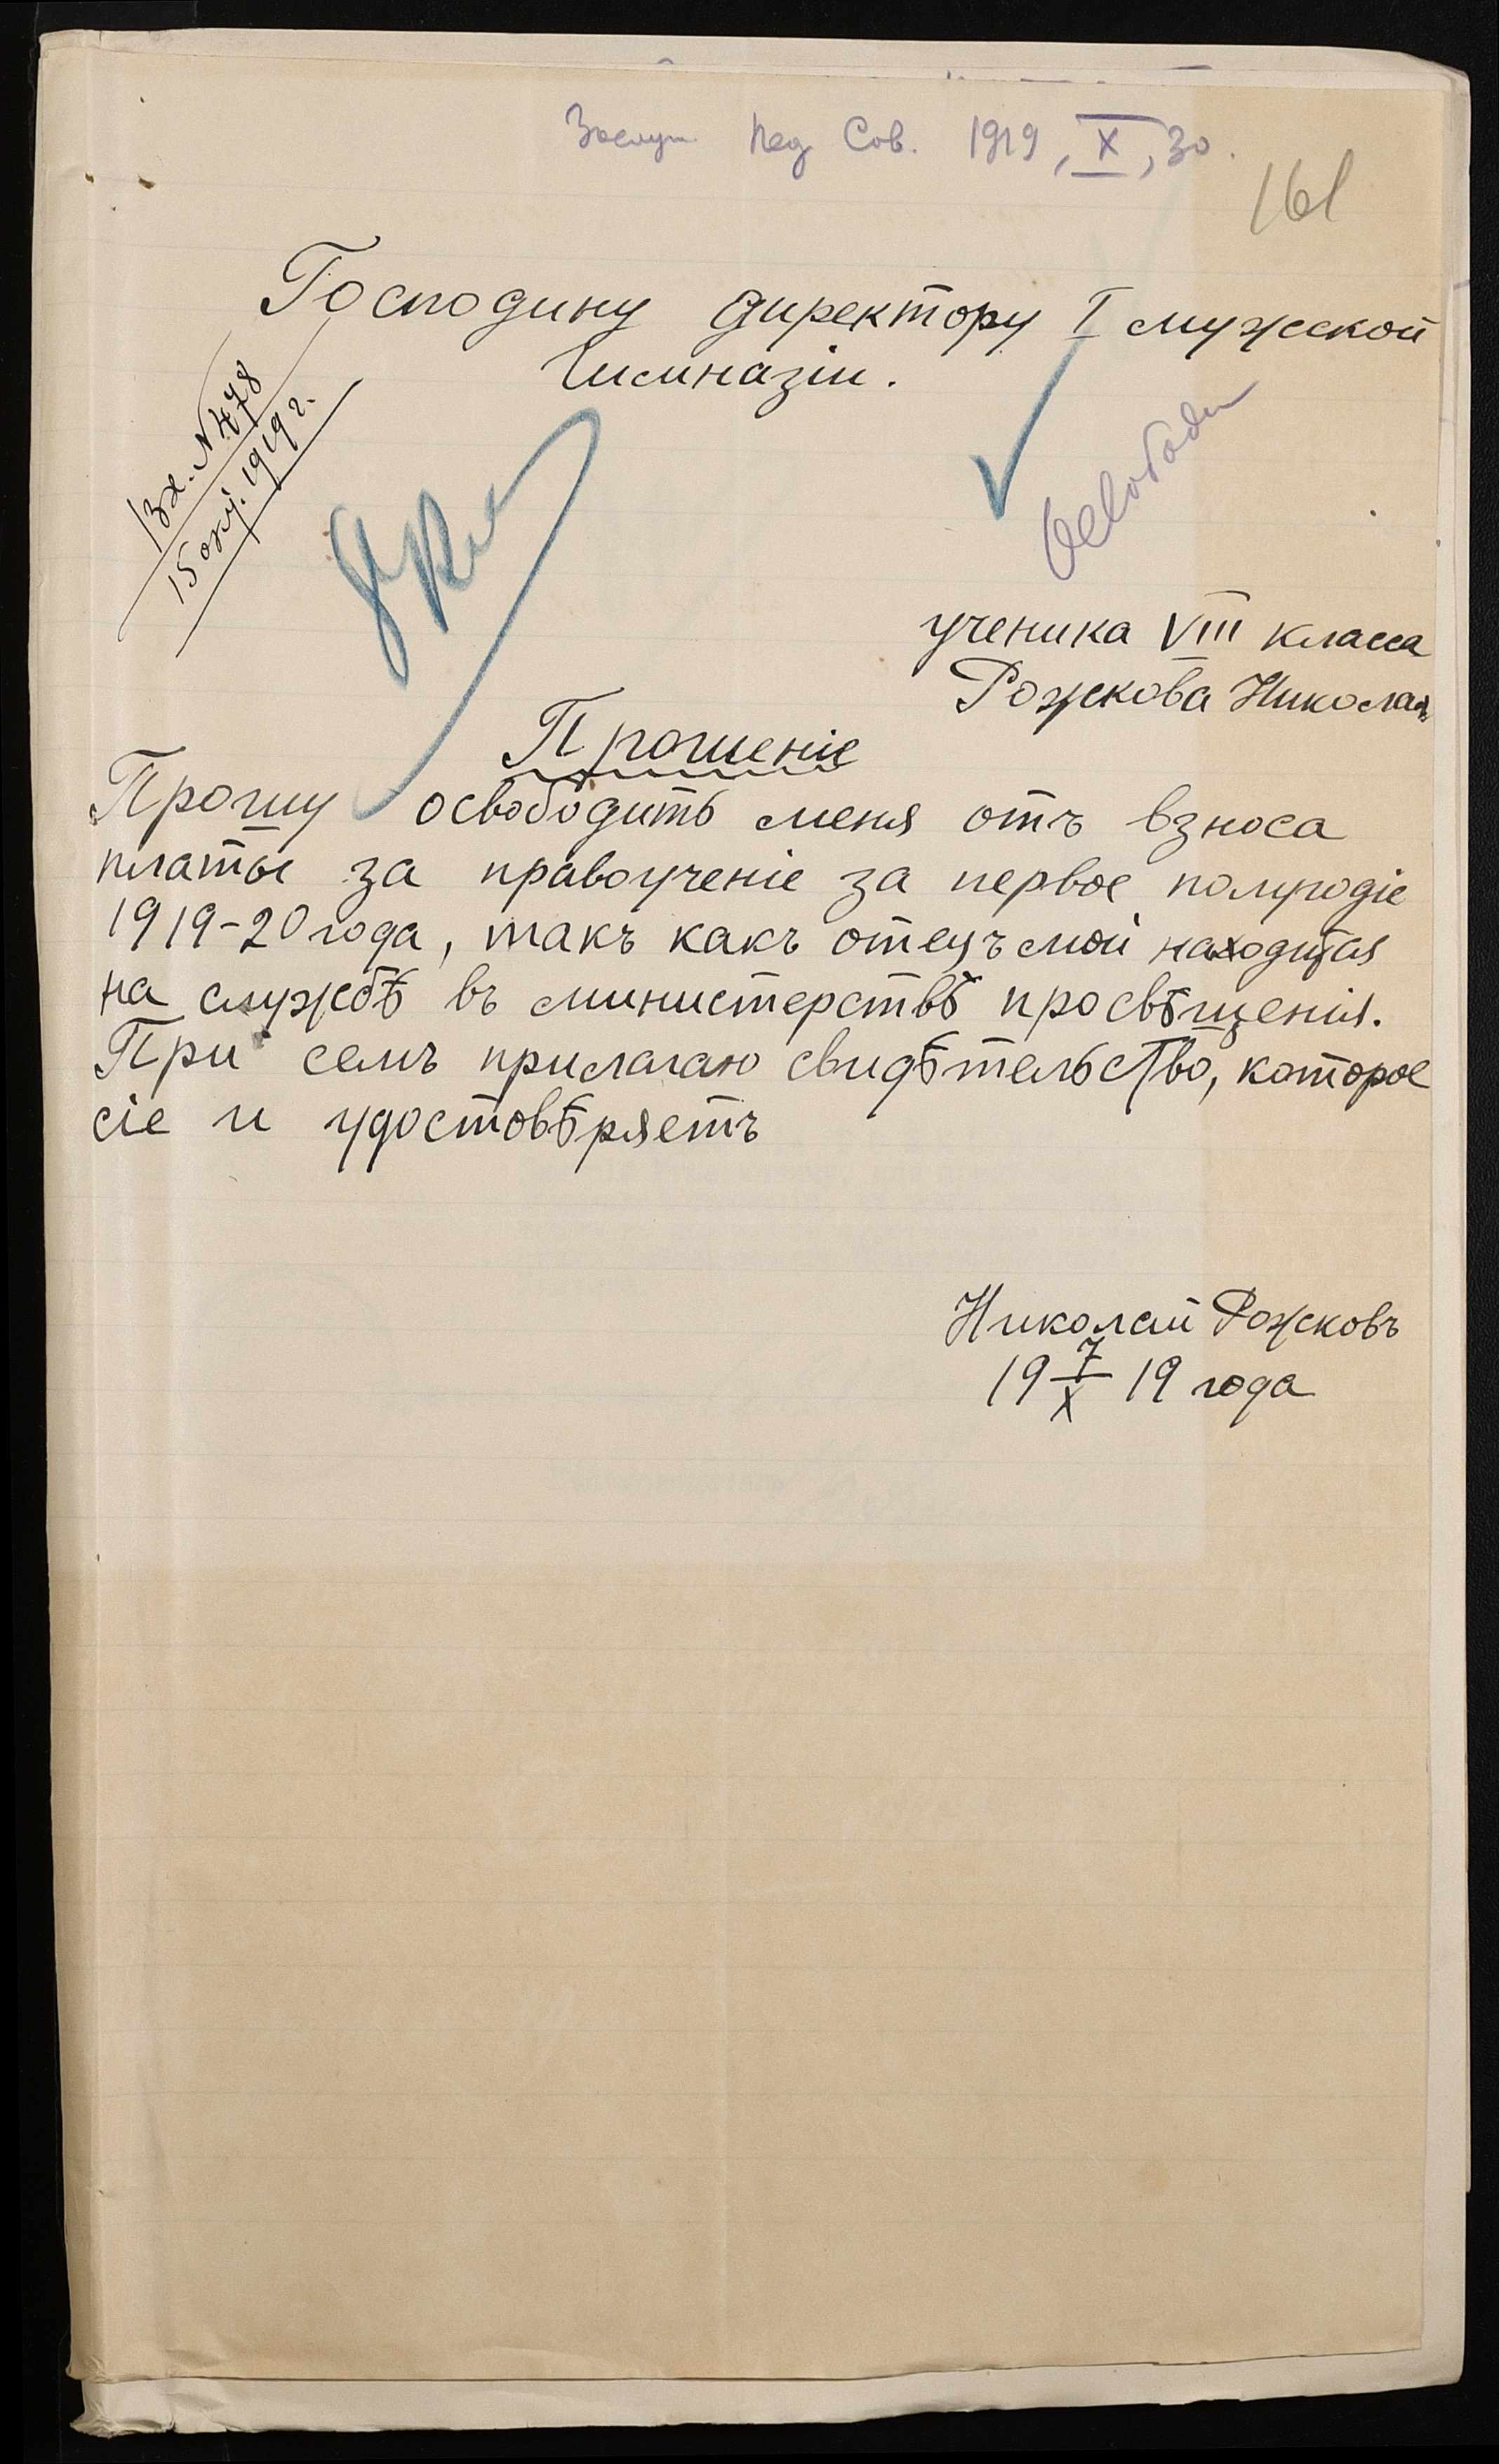 Заслуш. Пед. Сов. 1919, X, 30.
161
Господину директору I мужской
Гимназіи.
Вх. N 478
15 окт. 1919 г.
Освободи
ученика VIII класса
Рожкова Николая
Прошеніе
Прошу освободить меня отъ взноса
платы за правоученіе за первое полугодіе
1919-20 года, такъ какъ отецъ мой находится
на службѣ въ министерствѣ просвѣщенія.
При семъ прилагаю свидѣтельство, которое
сіе и удостовѣряетъ
Николай Рожковъ
19 7/X 19 года